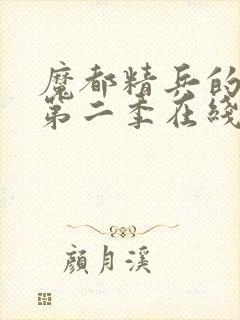 魔都精兵的
第二季在线
顏月溪